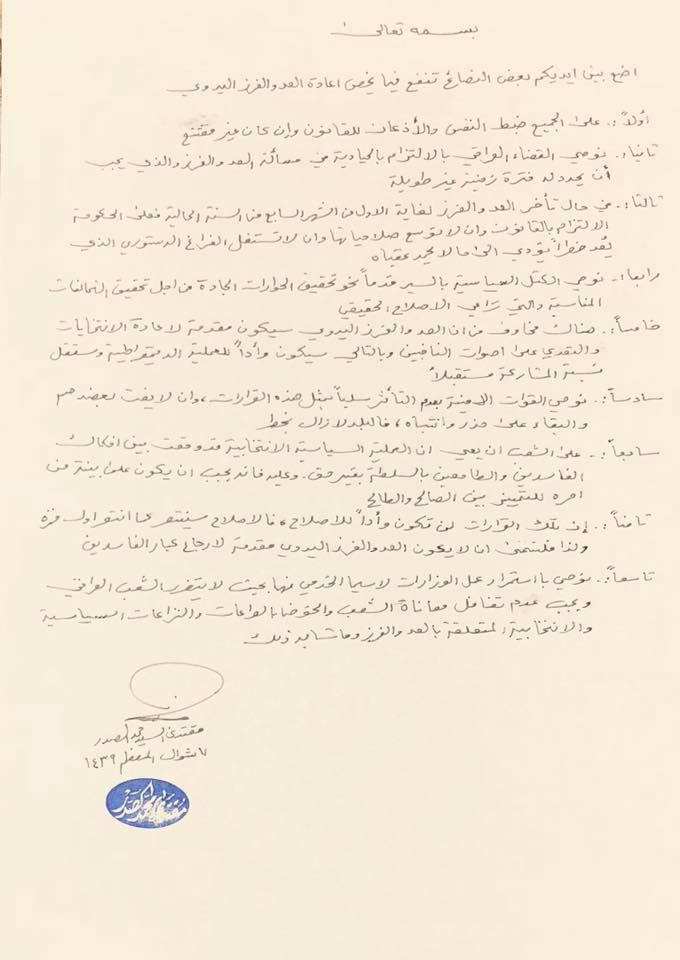 بسمه تعالى
اضع بين ايديكم بعض النصائح تنفع فيما يخص اعادة العد والفرز اليدوي
أولاً:. على الجميع ضبط النفس والأذعان للقانون وإن كان غير مقتنع
ثانياً:. نوصي القضاء العراقي بالالتزام بالحيادية في مسألة العد والفرز والذي يجب
أن يحدد له فترة زمنية غير طويلة
ثالثاً:. في حال تأخر العد والفرز لغاية الاول من الشهر السابع من السنة الحالية فعلى الحكومة
الالتزام بالقانون وان لا توسع صلاحياتها وان لا تستغل الفراغ الدستوري الذي
يُعد خطراً يؤدي الى ما لا يحمد عقباه
رابعاً:. نوصي الكتل السياسية بالسير قدماً نحو تحقيق الحوارات الجادة من اجل تحقيق التحالفات
المناسبة والتي تراعي الاصلاح الحقيقي
خامساً:. هناك مخاوف من ان العد والفرز اليدوي سيكون مقدمة لاعادة الانتخابات
والتعدي على اصوات الناخبين وبالتالي سيكون وأداً للعملية الديمقراطية وستقل
نسبة المشاركة مستقبلاً
سادساً:. نوصي القوات الامنية بعدم التأثر سلباً بمثل هذه القرارات، وان لا يفت بعضدهم
والبقاء على حذر وانتباه، فالبلد لازال بخطر
سابعاً:. على الشعب ان يعي ان العملية السياسية الانتخابية قد وقعت بين افكاك
الفاسدين والطامعين بالسلطة بغير حق. وعليه فانه يجب ان يكون على بينة من
امره للتمييز بين الصالح والطالح
ثامناً:. إن تلك القرارات لن تكون وأداً للاصلاح، فالاصلاح سينتصر كما انتصر اول مرة
ولذا فلنتمنى ان لا يكون العد والفرز اليدوي مقدمة لارجاع كبار الفاسدين
تاسعاً:. نوصي باستمرار عمل الوزارات لاسيما الخدمي منها بحيث لا يتضرر الشعب العراقي
ويجب عدم تغافل معاناة الشعب والخوض بالصراعات والنزاعات السياسية
والانتخابية المتعلقة بالعد والفرز وما شابه ذلك
مقتدى السيد محمد الصدر
٧ شوال المعظم ١٤٣٩